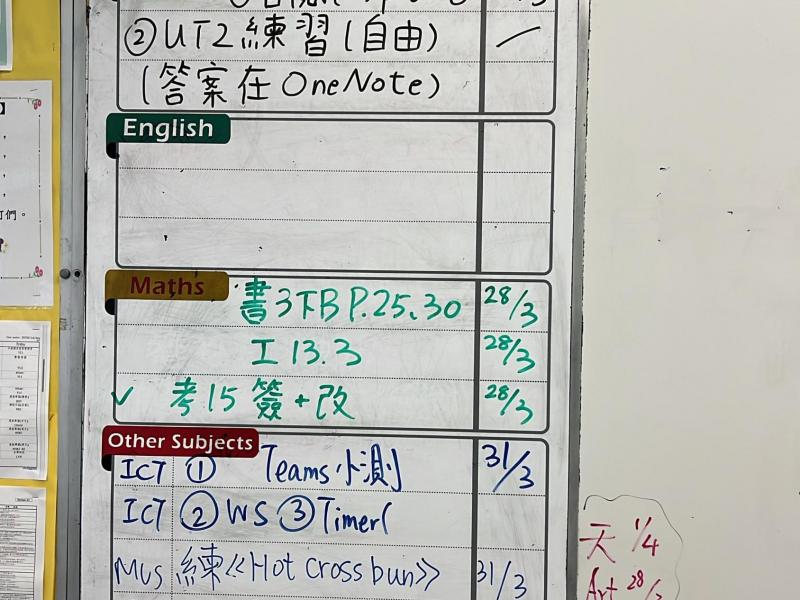 ②UT2練習(自由)
(答案在OneNote)
English
Maths
書3下B P.25,30 28/3
工13.3 28/3
✓ 考15簽+改 28/3
Other Subjects
ICT ① Teams小測 31/3
ICT ②WS ③Timer(
Mus 練《Hot cross bun》 31/3
天 1/4
Art 28/3
們。